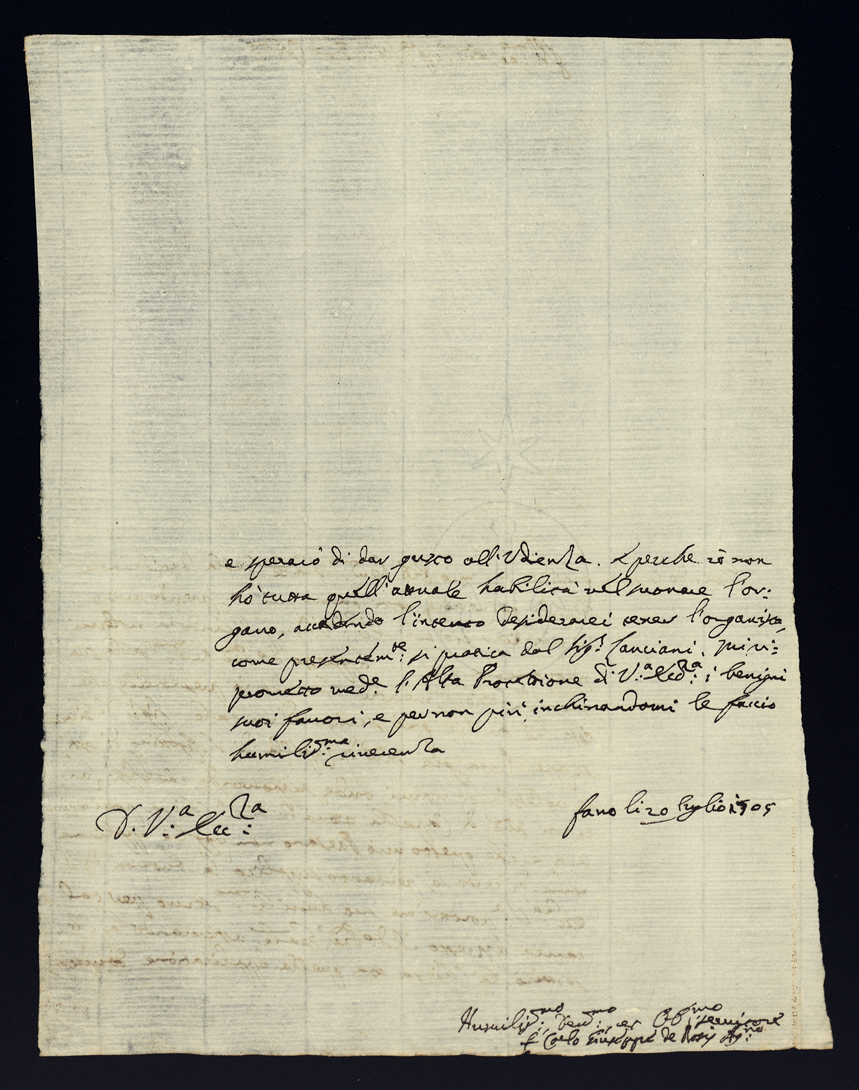 e sperarò di dar gusto all'Udienza. E perche io non
hò tutta quell'attuale habilità nel suonare l'or:
gano, accadendo l'intento desiderarei tener l'organista,
come presentem:te si pratica dal Sig:r Lanciani. Mi ri:
prometto med:e l'Alta Protettione di V:a Ecc:za i benigni
suoi favori, e per non più, inchinandomi le faccio
humiliss:ma riverenza
D. V:a Ecc:za
fano li 20 luglio 1705
Humiliss:mo Dev:mo et Obb:mo servitore
f. Carlo Giuseppe de Rossi